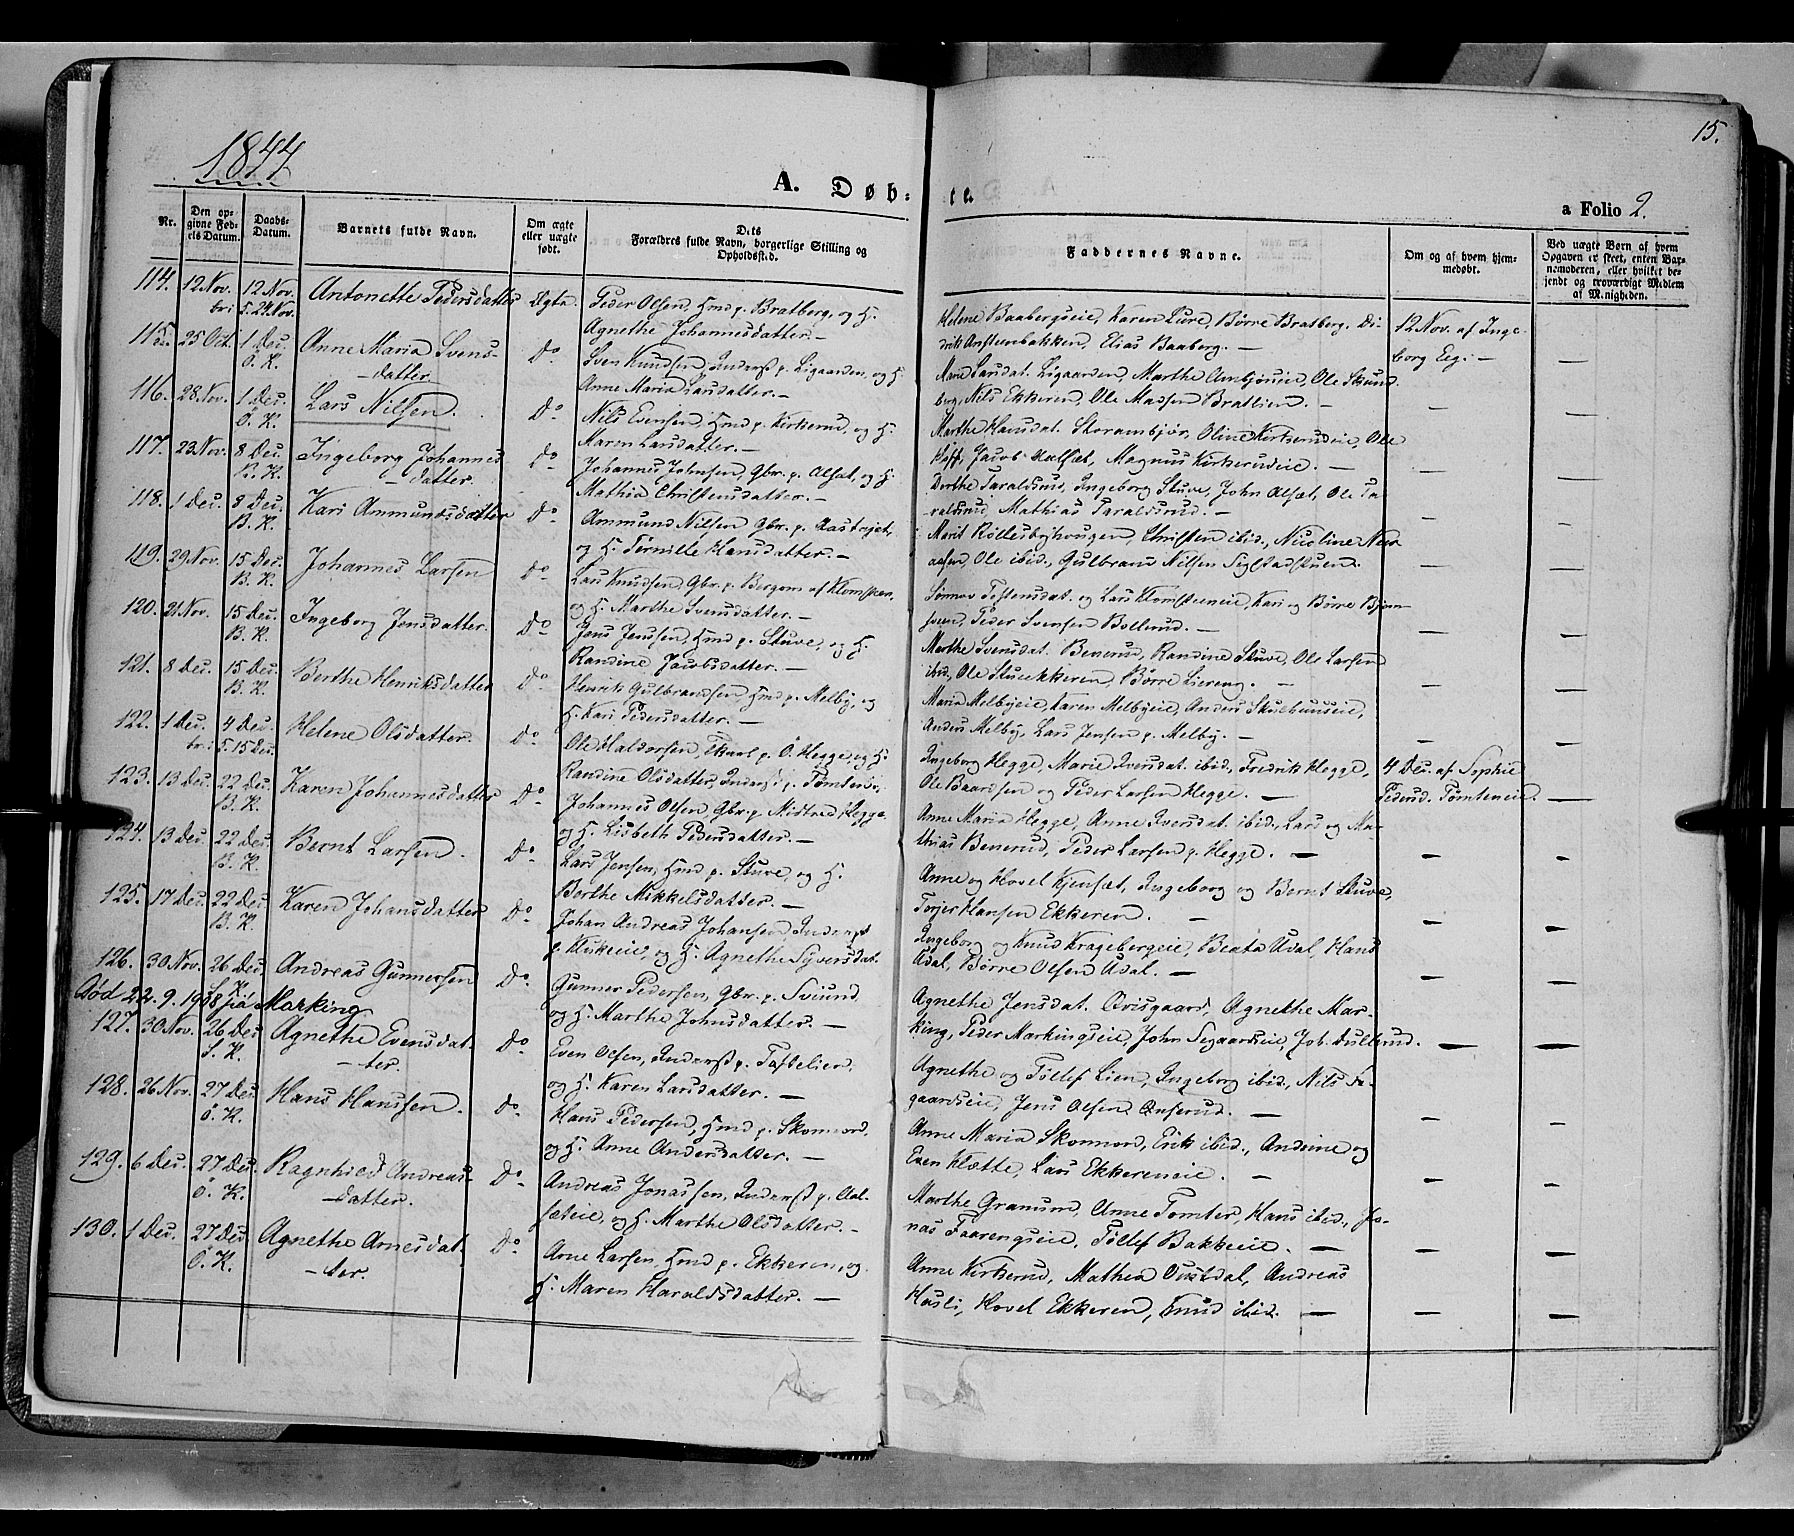 15.
1844
A. Døb-
te.
a Folio 2.
Nr.
Den opgivne Fødselsdatum.
Daabs-Datum.
Barnets fulde Navn.
Om ægte eller uægte født.
Forældres fulde Navn, borgerlige Stilling og Opholdssted.
Faddernes Navne.
Om og af hvem hjemmedøbt.
Ved uægte Børn af hvem Opgaven er skeet, enten Barnemoderen, eller hvilket betjendt og troværdigt Medlem af Menigheden.
114. 12 Nov. 12 Nov. Antonette Pedersdatter Ægte. Peder Olsen, Hmd p. Bratberg, og H.
5. 24 Nov. Agnethe Johannesdatter. —
Helene Baabergseie, Karen Lure, Børre Bratberg, Di- 12 Nov. af Inge-
drik Ansteenbakken, Elias Baaberg. — borg Eeg. — —
115. 25 Oct. 1 Dec. Anne Maria Svens- Do Sven Knudsen, Inderst p. Ligaarden, og H.
Ö. K. datter Anne Maria Larsdatter. —
Marie Larsdat. Ligaarden, Marthe
berg, Nils Ekkeren, Ole Madsen Bratlien. — — —
116. 28 Nov. 1 Dec. Lars Nilsen. Do Nils Evensen, Hmd p. Kirkerud, og H.
Ö. K. Maren Larsdatter. —
Marthe Hansdat. Oline Kirkerudeie, Ole
Jacob Magnus Kirkerudeie. — — —
117. 23 Nov. 8 Dec. Ingeborg Johannes Do Johannes Johnsen, Gbr. p. Alset, og H.
B. K. datter. Mathia Christensdatter. —
Dorthe Taraldsrud, Ingeborg Stuve, John Alset, Ole Ta-
raldsrud, Mathias Taraldsrud. — — —
118. 1 Dec. 8 Dec. Kari Ammundsdatter Do Ammund Nilsen, Gbr. p.
B. K. og H. Pernille Hansdatter. —
Marit Christen ibid., Nicoline
Ole ibid., Gulbrand Nilsen — —
119. 29 Nov. 15 Dec. Johannes Larsen Do Lars Knudsen, Gbr. p.
B. K. og H. Marthe Svensdatter. —
og Lars Kari og Børre
Peder Svensen Bollerud. — — —
120. 21 Nov. 15 Dec. Ingeborg Jensdatter. Do Jens Jensen, Hmd p. Stuve, og H.
B. K. Randine Jacobsdatter. —
Marthe Svensdat. Benerud, Randine Stuve, Ole Larsen
ibid., Ole Børre Liereng. — — —
121. 8 Dec. 15 Dec. Berthe Henriksdatter Do Henrik Gulbrandsen, Hmd p. Melby, og
B. K. H. Kari Pedersdatter. —
Maria Melbyeie, Karen Melbyeie, Anders
Anders Melby, Lars Jensen p. Melby. — — —
122. 1 Dec. 4 Dec. Helene Olsdatter. Do Ole Haldorsen, p. Ö. Hegge, og H.
5. 15 Dec. Randine Olsdatter, Inderst p. Tomten
Ingeborg Hegge, Marie Iversdat. ibid., Fredrik Hegge, 4 Dec. af Sophie
Ole Baardsen og Peder Larsen Hegge. — Pedersd. Tomteneie. —
123. 13 Dec. 22 Dec. Karen Johannesdatter Do Johannes Olsen, Gbr. p. Midtre Hegge,
B. K. og H. Lisbeth Pedersdatter. —
Anne Maria Hegge, Anne Iversdat. ibid., Lars og Ma-
thias Benerud, Peder Larsen p. Hegge. — — —
124. 13 Dec. 22 Dec. Bernt Larsen. Do Lars Jensen, Hmd p. Stuve, og H.
B. K. Berthe Mikkelsdatter. —
Anne og Hovel Kjenset, Ingeborg og Bernt Stuve,
Torjer Hansen Ekkeren. — — —
125. 17 Dec. 22 Dec. Karen Johansdatter Do Johan Andreas Johansen, Inderst
B. K. p. Kluk­eie, og H. Agnethe Syversdat.
Ingeborg og Knud Kragebergeie, Beata Udal, Hans
Udal, Børre Olsen Udal. — — —
126. 30 Nov. 26 Dec. Andreas Gunnersen Do Gunner Pedersen, Gbr. p. Sviund,
S. K. og H. Marthe Johnsdatter. —
død 22.9.1908 på Marking
Agnethe Jensdat. Qvisgaard, Agnethe Mar-
king, Peder Markingseie, John Segaardseie, Joh. — —
127. 30 Nov. 26 Dec. Agnethe Evensdat- Do Even Olsen, Inderst p. Toftelien,
S. K. ter. og H. Karen Larsdatter. —
Agnethe og Tollef Lien, Ingeborg ibid., Nils Se-
gaardseie, Jens Olsen — — —
128. 26 Nov. 27 Dec. Hans Hansen. Do Hans Pedersen, Hmd p. Skonnord,
Ö. K. og H. Anne Andersdatter. —
Anne Maria Skonnord, Erik ibid., Andrine og
Even Klætte, Lars Ekkereneie. — — —
129. 6 Dec. 27 Dec. Ragnhild Andreas- Do Andreas Jonassen, Inderst p. Aal-
Ö. K. datter. seteie, og H. Marthe Olsdatter. —
Marthe Granund, Anne Tomter, Hans ibid., Jo-
nas Faarengseie, Tollef Bakkeeie. — — —
130. 1 Dec. 27 Dec. Agnethe Arnesdat- Do Arne Larsen, Hmd p. Ekkeren, og
Ö. K. ter. H. Maren Haraldsdatter. —
Anne Kirkerud, Mathea Andreas
Husli, Hovel Ekkeren, Knud ibid. — — —